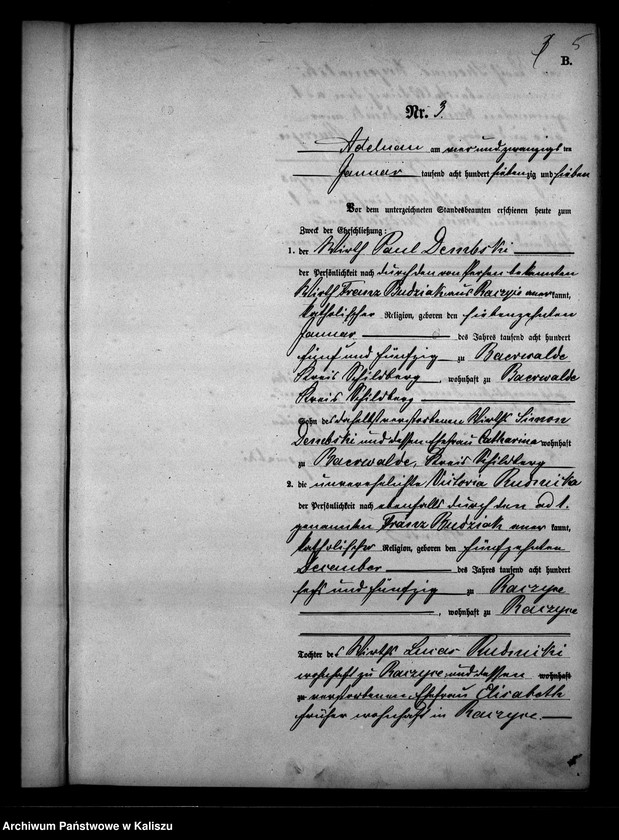 5
B.
Nr. 3.
Adelnau am vier und zwanzigsten
Januar tausend acht hundert siebenzig und sieben
Vor dem unterzeichneten Standesbeamten erschienen heute zum
Zweck der Eheschließung:
1. der Wirth Paul Dembski
der Persönlichkeit nach durch den von Person bekannten
Wirth Franz Budziak aus Raczyce anerkannt,
katholischer Religion, geboren den siebenzehnten
Januar des Jahres tausend acht hundert
fünf und fünfzig zu Baerwalde
Kreis Schildberg, wohnhaft zu Baerwalde
Kreis Schildberg
Sohn des daselbst verstorbenen Wirths Simon
Dembski und dessen Ehefrau Catharina wohnhaft
zu Baerwalde, Kreis Schildberg
2. die unverehelichte Victoria Rudnicka
der Persönlichkeit nach ebenfalls durch den ad 1.
genannten Franz Budziak anerkannt,
katholischer Religion, geboren den fünfzehnten
December des Jahres tausend acht hundert
sechs und fünfzig zu Raczyce
, wohnhaft zu Raczyce
Tochter des Wirths Lucas Rudnicki
wohnhaft zu Raczyce und dessen wohnhaft
zu verstorbenen Ehefrau Elisabeth
früher wohnhaft in Raczyce.
Archiwum Państwowe w Kaliszu